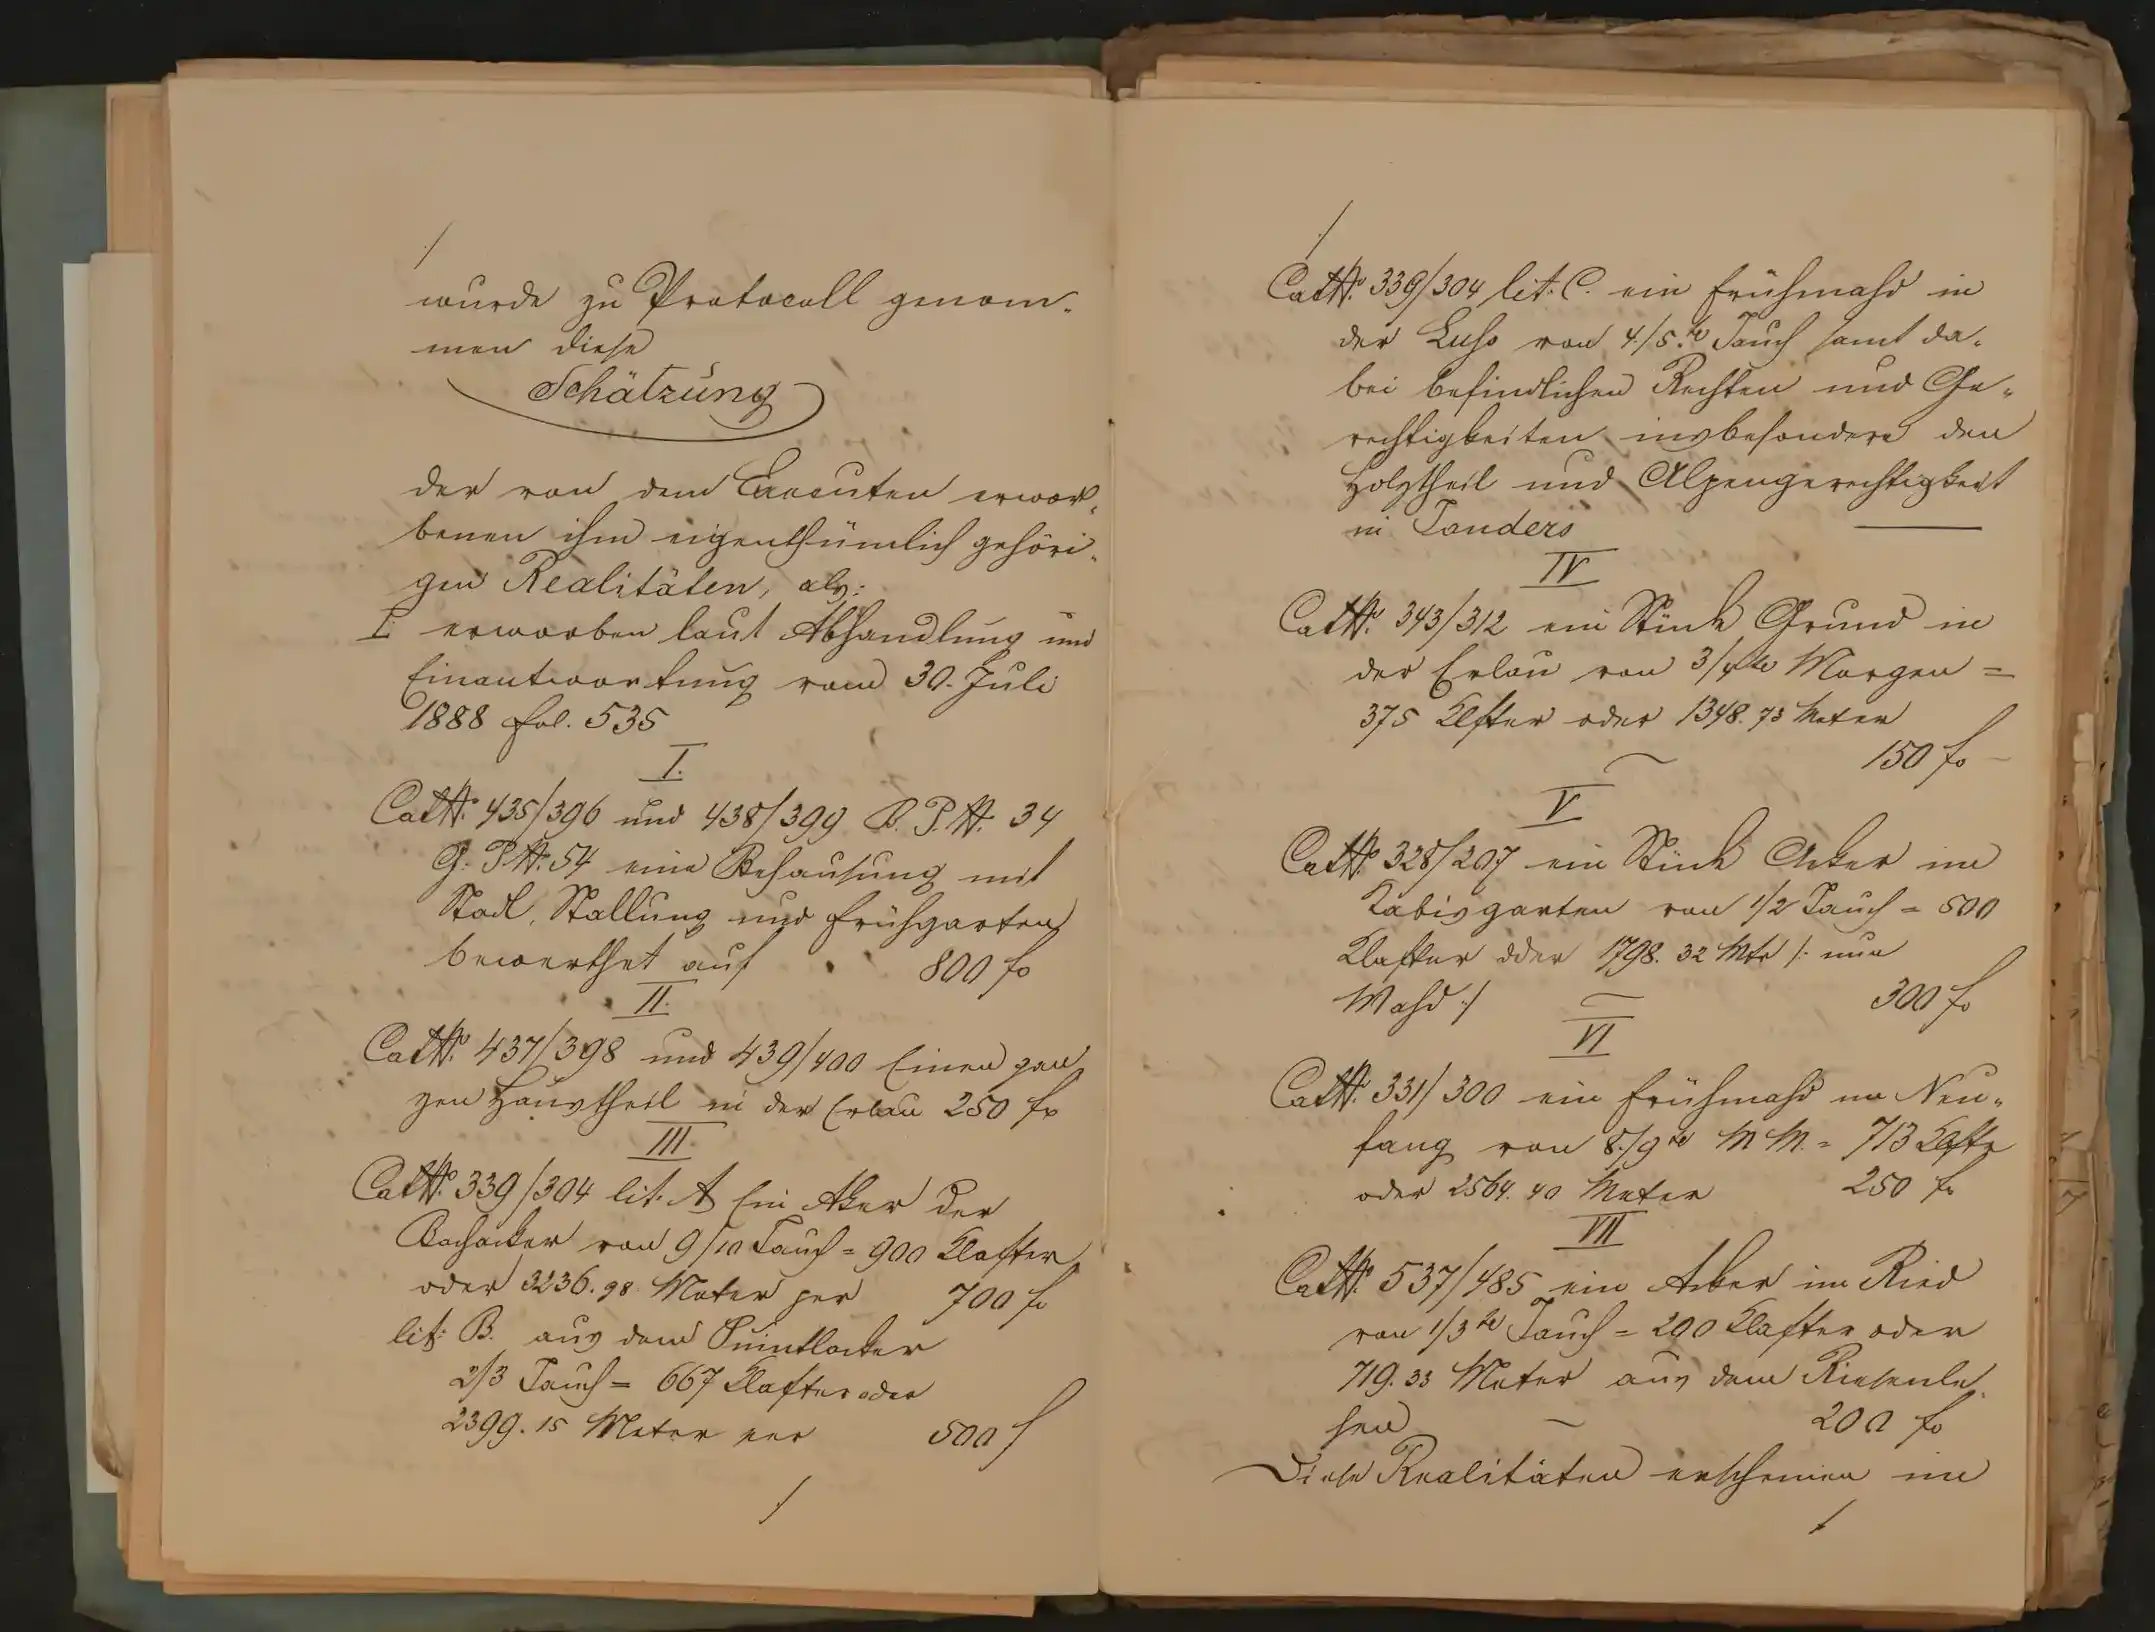 wurde zu Protocoll genom-
men diese
Schätzung
der von dem Executen erwor-
benen ihm eigenthümlich gehöri-
gen Realitäten, als:
I erworben laut Abhandlung und
Einantwortung vom 30. Juli
1888 fol. 535
I.
Cat№. 435/396 und 438/399 B. P. №. 34
G. P. №. 54 eine Behausung mit
Stadl, Stallung und Frühgarten
bewerthet auf 800 f
II.
Cat№. 437/398 und 439/400 Einen gan
zen Haustheil in der Erlau 250 f
III.
Cat№. 339/304 lit. A Ein Aker der
Bachacker von 9/10 Jauch = 900 Klafter
oder 3236.98 Meter per 700 f
lit: B. aus dem
2/3 Jauch = 667 Klafter oder
2399.15 Meter per 500 f
Cat№. 339/304 lit. C. ein Frühmahd in
der von 4/5te Jauch samt da-
bei befindlichen Rechten und Ge-
rechtigkeiten insbesondere den
Holztheil und Alpengerechtigkeit
in Tanders
IV
Cat№. 343/312 ein Stück Grund in
der Erlau von 3/4te Morgen =
375 Klfter oder 1348.73 Meter
150 f
V
Cat№. 328/297 ein Stück Acker im
Kabisgarten von 1/2 Jauch = 500
Klafter oder 1798.32 Mtr /: nun
Mahd :/ 300 f
VI
Cat№. 331/300 ein Frühmahd im Neu-
fang von 8/9te M M. = 713 Klftr
oder 2564.40 Meter 250 f
VII
Cat№. 537/485 ein Acker im Ried
von 1/3te Jauch = 200 Klafter oder
719.33 Meter aus dem Riesenle-
hen 200 f
Diese Realitäten erscheinen im